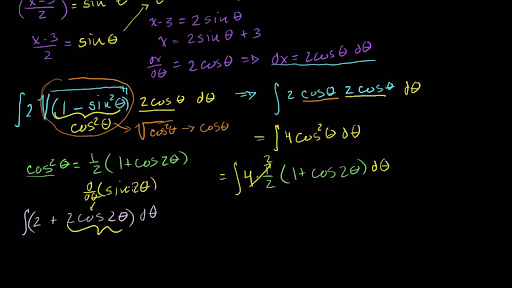 (x-3/2)² = sin²θ
x-3 = 2 sin θ
x-3/2 = sin θ
x = 2 sin θ + 3
dx/dθ = 2 cos θ => dx = 2 cos θ dθ
∫ 2 √(1 - sin²θ) 2 cos θ dθ => ∫ 2 cos θ 2 cos θ dθ
cos²θ → √cos²θ → cos θ
= ∫ 4 cos²θ dθ
cos²θ = 1/2 (1 + cos 2θ)
= ∫ 4 · 1/2 (1 + cos 2θ) dθ
2
d/dθ (sin 2θ)
∫(2 + 2 cos 2θ) dθ